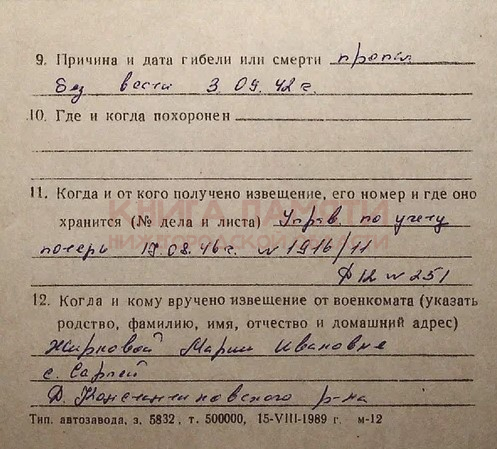 9. Причина и дата гибели или смерти пропал
без вести 3.09.42г.
10. Где и когда похоронен
11. Когда и от кого получено извещение, его номер и где оно
КНИГА ПАМЯТИ
хранится (№ дела и листа) Управ. по учету
НИЖЕГОРОДСКОЙ ОБЛАСТИ
потерь 17.08.46г. № 1916/11
Ф12 № 251
12. Когда и кому вручено извещение от военкомата (указать
родство, фамилию, имя, отчество и домашний адрес)
Жирновой Марии Ивановне
с. Сарлей
Д. Константиновского р-на
Тип. автозавода, з. 5832, т. 500000, 15-VIII-1989 г. м-12